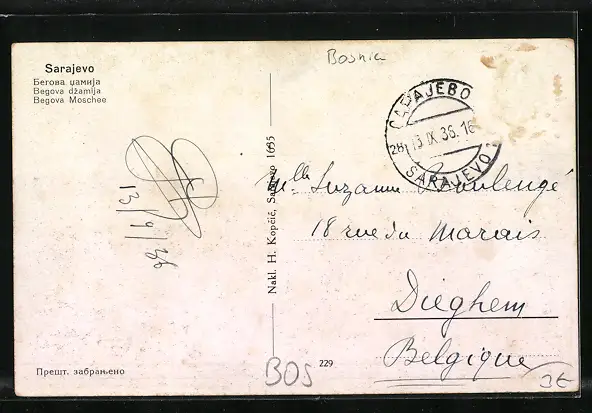 Bosnia
Sarajevo
Бегова џамија
Begova džamija
Begova Moschee
САРАЈЕВО
13 IX 36.16
SARAJEVO
Mlle Suzanne Boulengé
18 rue du Marais
Dieghem
Belgique
13/9/36
Nakl. H. Kopčić, Sarajevo 1635
Прешт. забрањено
BOS
229
3€